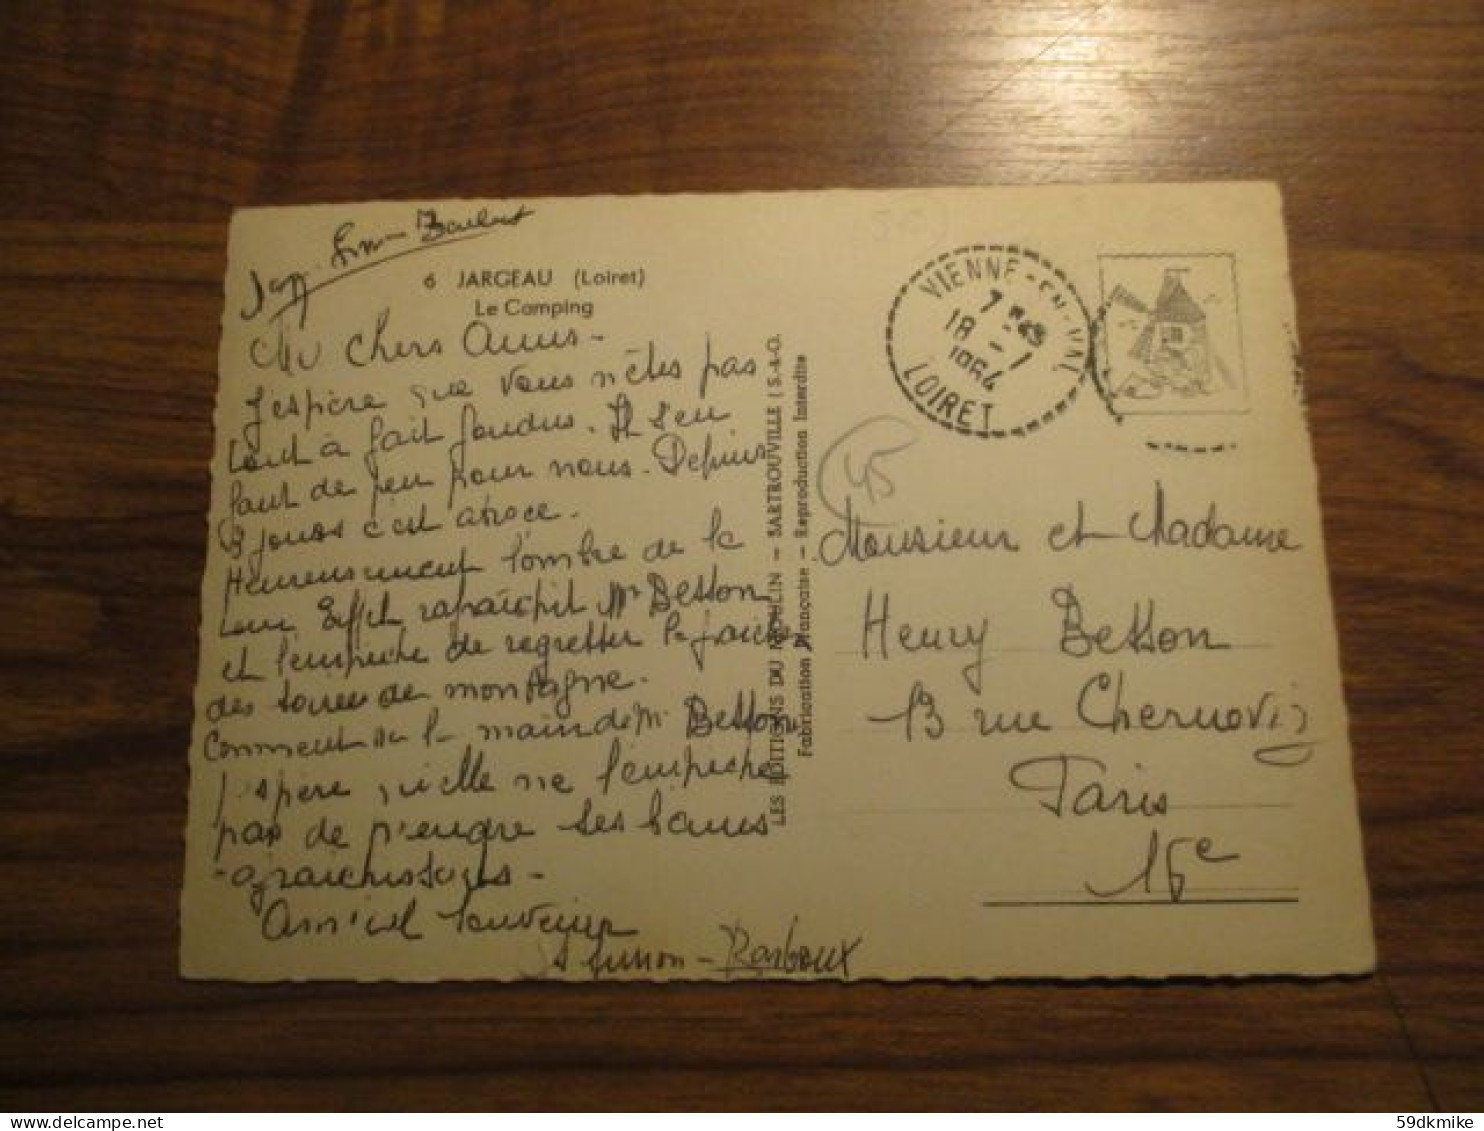 6 JARGEAU (Loiret)
Le Camping
Chers Amis -
J'espère que vous n'êtes pas
tout à fait fondus. Il s'en
faut de peu pour nous. Depuis
3 jours c'est atroce.
Heureusement l'ombre de la
et l'empêche de regretter la fraîcheur
des soirées de montagne.
Comment va la main de Mr Besson
J'espère qu'elle ne l'empêche
pas de prendre ses bains
rafraichissants -
Amical souvenir
LES EDITIONS DU MOULIN - SARTROUVILLE (S.-&-O.
Fabrication Française - Reproduction Interdite
VIENNE-EN-VAL
18 - 7
1964
LOIRET
45
Monsieur et Madame
Henry Besson
13 rue Chernoviz
Paris
16e
59dkmike